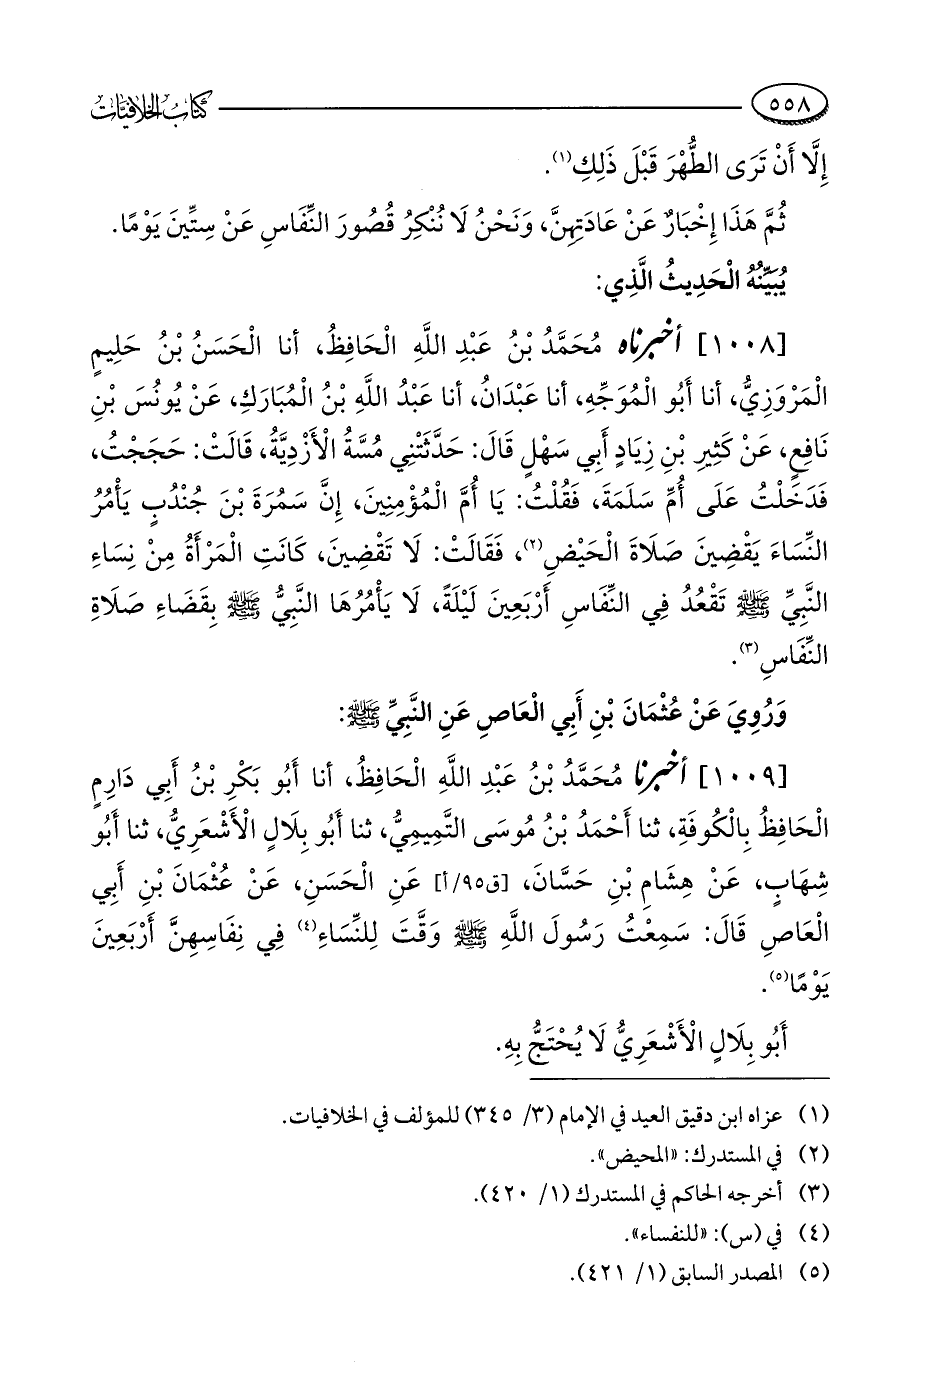 ٥٥٨ كتاب الخلافيات
إِلَّا أَنْ تَرَى الطُّهْرَ قَبْلَ ذَلِكِ(١).
ثُمَّ هَذَا إِخْبَارٌ عَنْ عَادَتِهِنَّ، وَنَحْنُ لَا نُنْكِرُ قُصُورَ النِّفَاسِ عَنْ سِتِّينَ يَوْمًا.
يُبَيِّنُهُ الْحَدِيثُ الَّذِي:
[١٠٠٨] أخبرناه مُحَمَّدُ بْنُ عَبْدِ اللَّهِ الْحَافِظُ، أنا الْحَسَنُ بْنُ حَلِيمٍ
الْمَرْوَزِيُّ، أنا أَبُو الْمُوَجِّهِ، أنا عَبْدَانُ، أنا عَبْدُ اللَّهِ بْنُ الْمُبَارَكِ، عَنْ يُونُسَ بْنِ
نَافِعٍ، عَنْ كَثِيرِ بْنِ زِيَادٍ أَبِي سَهْلٍ قَالَ: حَدَّثَتْنِي مُسَّةُ الْأَزْدِيَّةُ، قَالَتْ: حَجَجْتُ،
فَدَخَلْتُ عَلَى أُمِّ سَلَمَةَ، فَقُلْتُ: يَا أُمَّ الْمُؤْمِنِينَ، إِنَّ سَمُرَةَ بْنَ جُنْدُبٍ يَأْمُرُ
النِّسَاءَ يَقْضِينَ صَلَاةَ الْحَيْضِ(٢)، فَقَالَتْ: لَا تَقْضِينَ، كَانَتِ الْمَرْأَةُ مِنْ نِسَاءِ
النَّبِيِّ ﷺ تَقْعُدُ فِي النِّفَاسِ أَرْبَعِينَ لَيْلَةً، لَا يَأْمُرُهَا النَّبِيُّ ﷺ بِقَضَاءِ صَلَاةِ
النِّفَاسِ(٣).
وَرُوِيَ عَنْ عُثْمَانَ بْنِ أَبِي الْعَاصِ عَنِ النَّبِيِّ ﷺ:
[١٠٠٩] أخبرنا مُحَمَّدُ بْنُ عَبْدِ اللَّهِ الْحَافِظُ، أنا أَبُو بَكْرِ بْنُ أَبِي دَارِمٍ
الْحَافِظُ بِالْكُوفَةِ، ثنا أَحْمَدُ بْنُ مُوسَى التَّمِيمِيُّ، ثنا أَبُو بِلَالٍ الْأَشْعَرِيُّ، ثنا أَبُو
شِهَابٍ، عَنْ هِشَامِ بْنِ حَسَّانَ، [ق٩٥/أ] عَنِ الْحَسَنِ، عَنْ عُثْمَانَ بْنِ أَبِي
الْعَاصِ قَالَ: سَمِعْتُ رَسُولَ اللَّهِ ﷺ وَقَّتَ لِلنِّسَاءِ(٤) فِي نِفَاسِهِنَّ أَرْبَعِينَ
يَوْمًا(٥).
أَبُو بِلَالٍ الْأَشْعَرِيُّ لَا يُحْتَجُّ بِهِ.
(١) عزاه ابن دقيق العيد في الإمام (٣/ ٣٤٥) للمؤلف في الخلافيات.
(٢) في المستدرك: «المحيض».
(٣) أخرجه الحاكم في المستدرك (١/ ٤٢٠).
(٤) في (س): «للنفساء».
(٥) المصدر السابق (١/ ٤٢١).